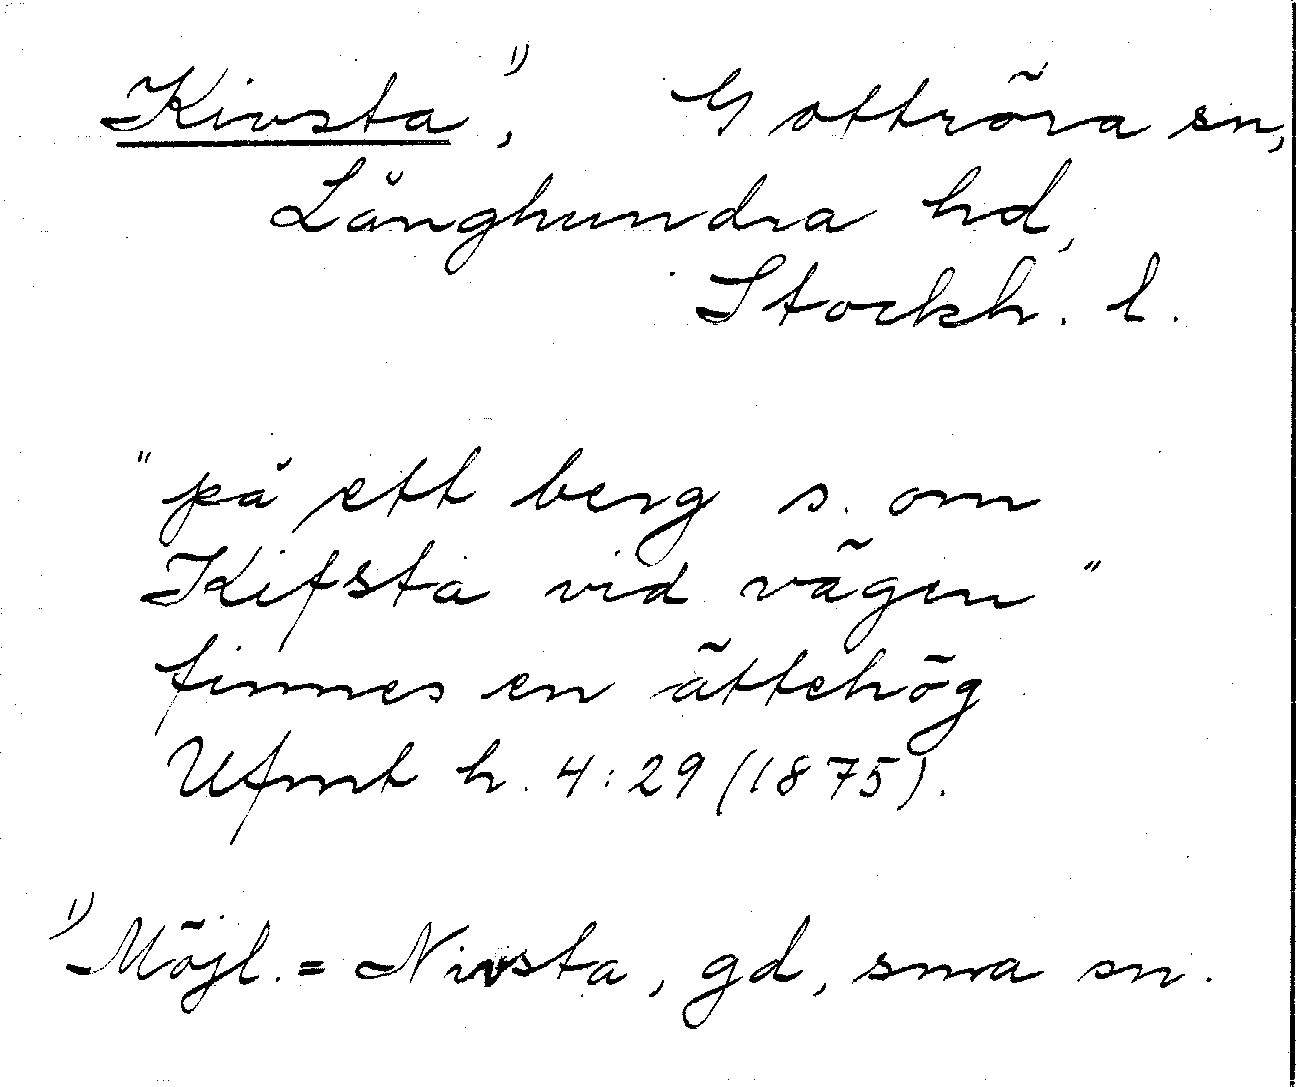 Kivsta,¹⁾ Gottröra sn,
Långhundra hd,
Stockh. l.
"på ett berg s. om
Kifsta vid vägen"
finnes en ättehög
Ufmt h. 4:29 (1875).
¹⁾ Möjl. = Nivsta, gd, sma sn.